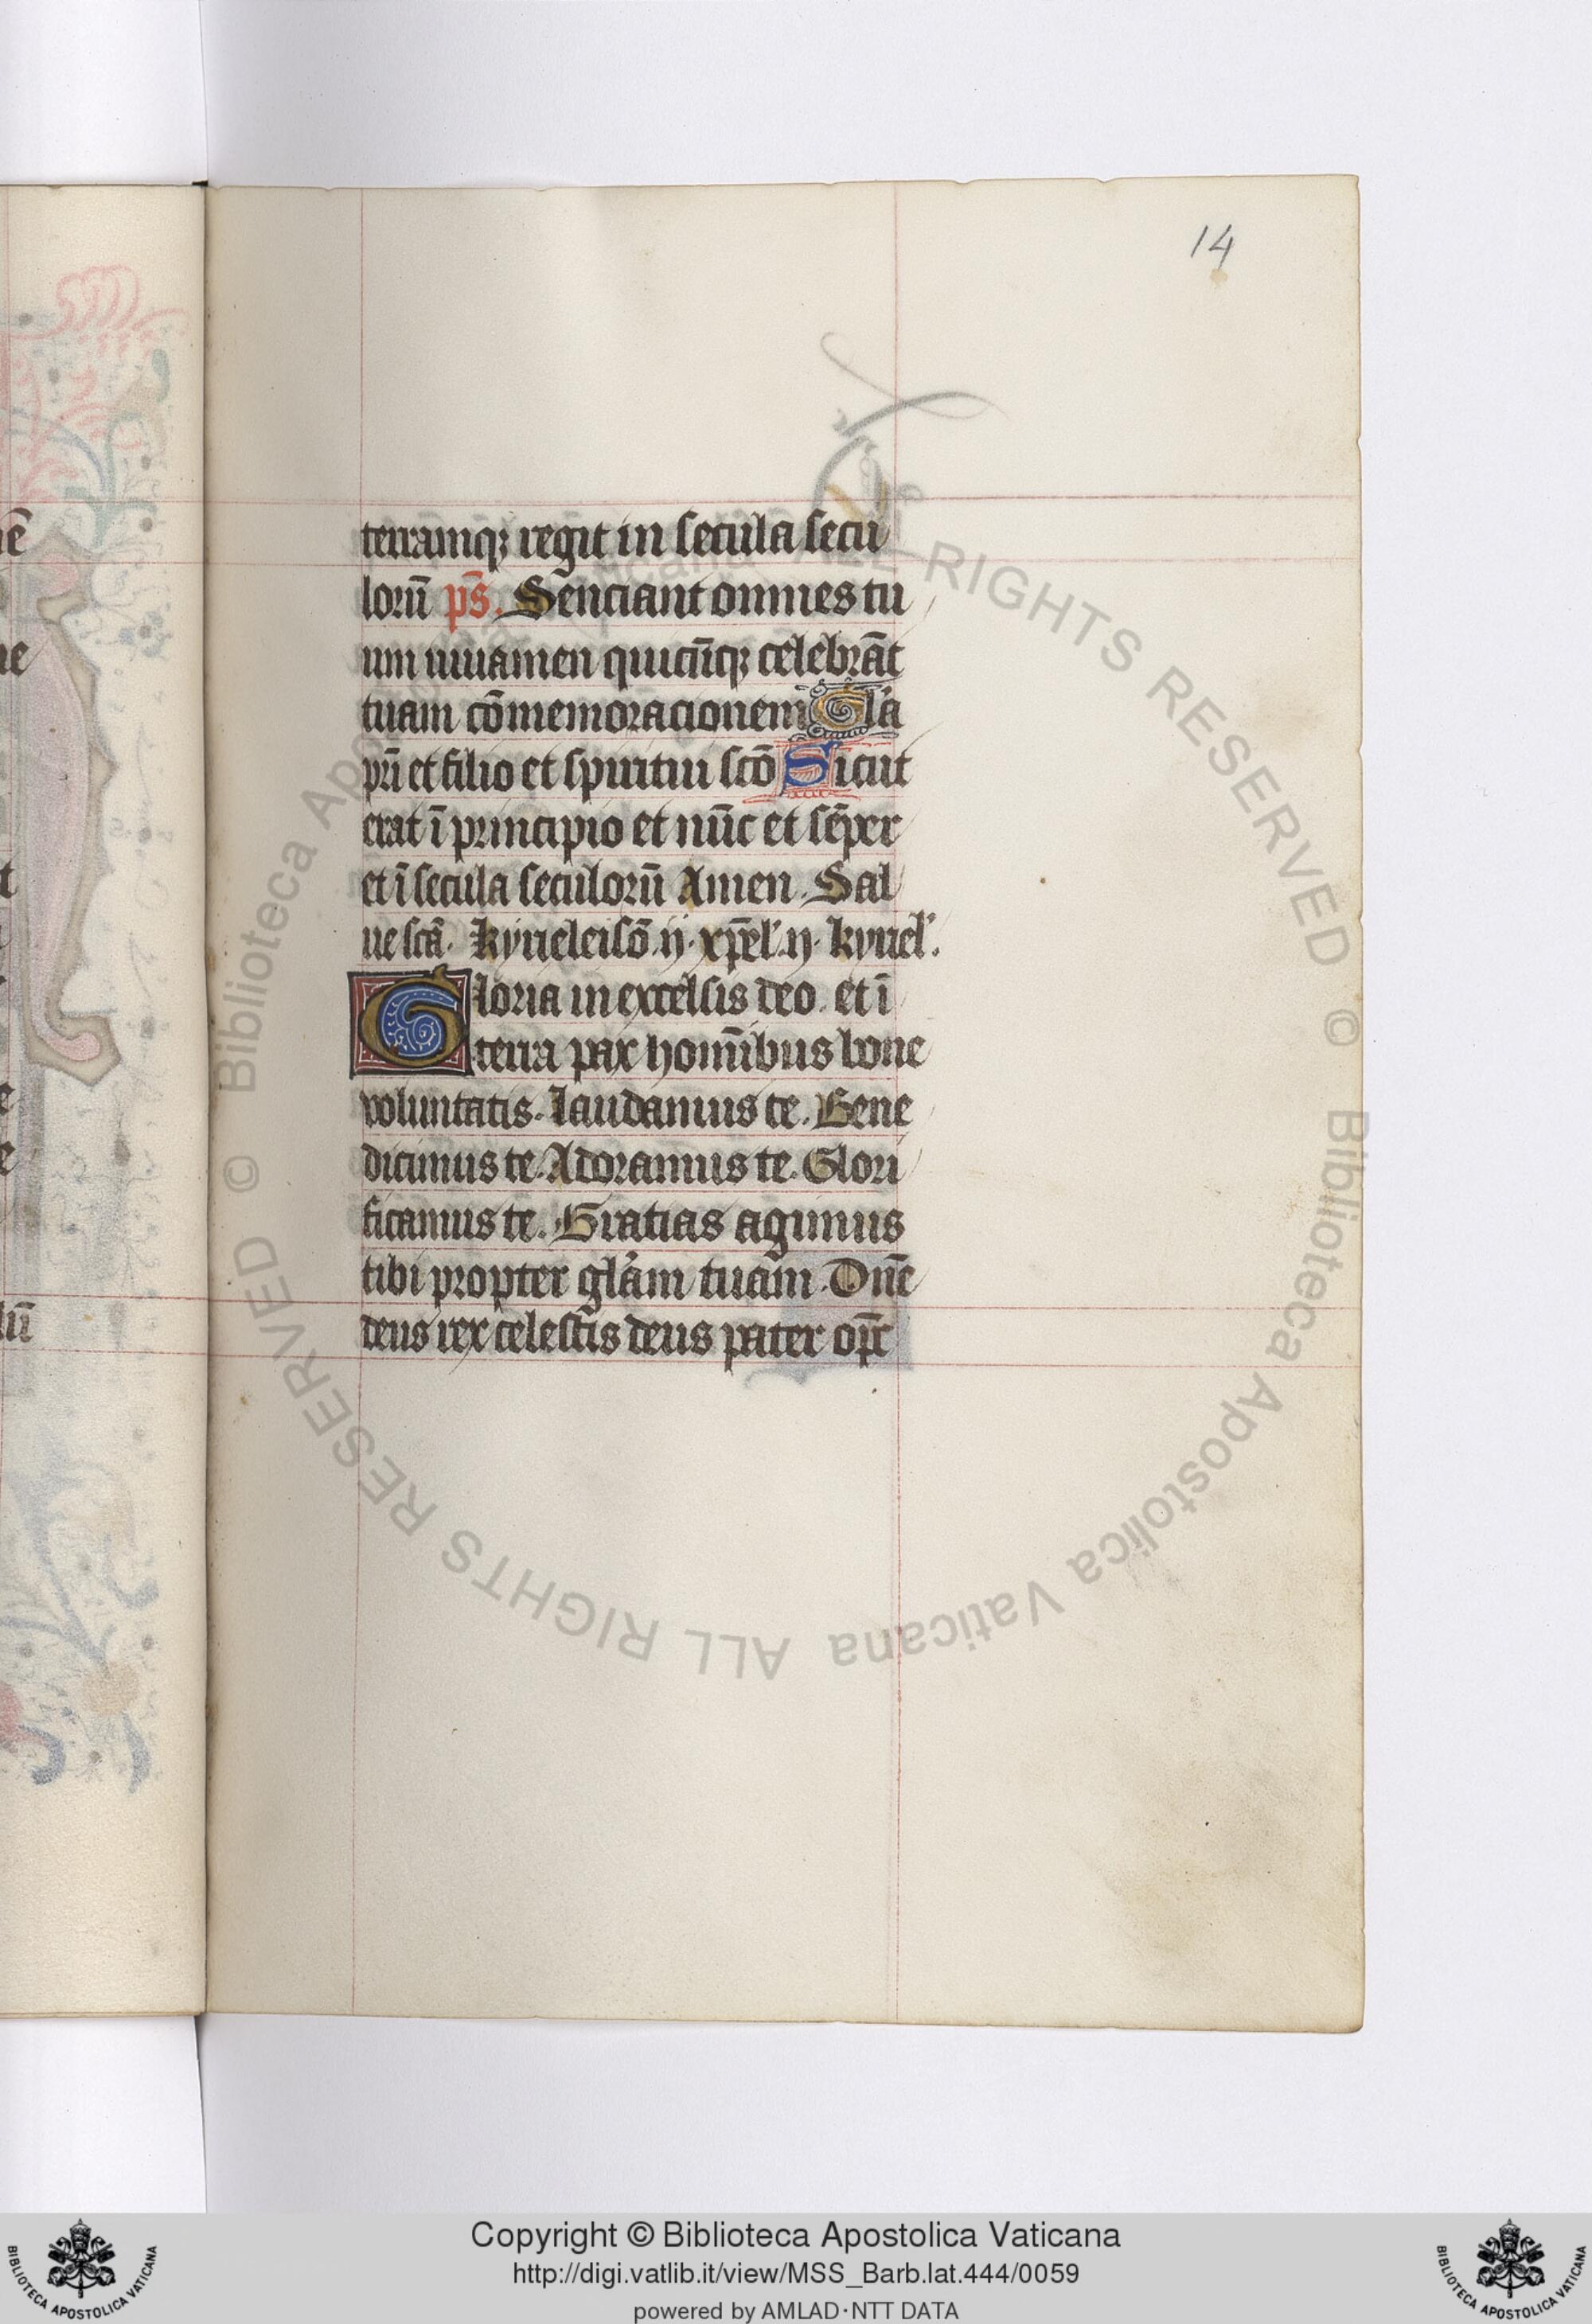 14
terramqȝ regit in secula secu
lorū ps̄. Senciant omnes tu
um iuuamen quicūqȝ celebrāt
tuam cōmemoracionem Gl'a
pri̅ et filio et spiritui scō Sicut
erat ī principio et nūc et sēper
et ī secula seculorū Amen. Sal
ue scā. kyrieleisō. ij. xp̄el'. ij. kyriel'.
Gloria in excelsis deo. et ī
terra pax homībus bone
voluntatis. laudamus te. Bene
dicimus te. Adoramus te. Glori
ficamus te. Gratias agimus
tibi propter gl'am tuam. Dn̄e
deus rex celestis deus pater op̄c
© Biblioteca Apostolica Vaticana ALL RIGHTS RESERVED © Biblioteca Apostolica Vaticana ALL RIGHTS RESERVED
Copyright © Biblioteca Apostolica Vaticana
http://digi.vatlib.it/view/MSS_Barb.lat.444/0059
powered by AMLAD·NTT DATA
BIBLIOTECA APOSTOLICA VATICANA
BIBLIOTECA APOSTOLICA VATICANA